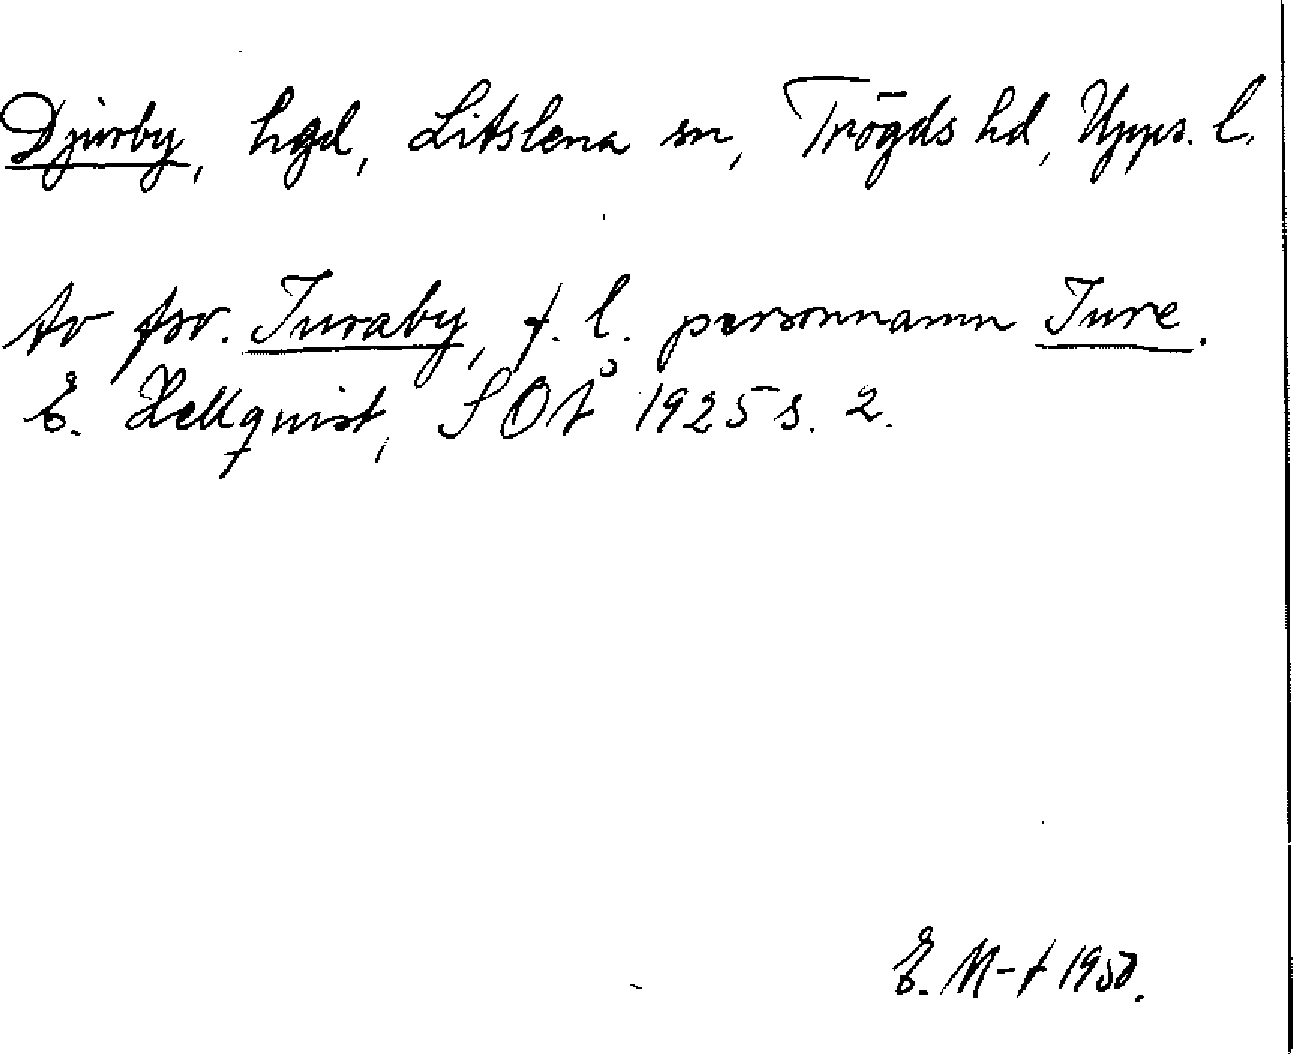 Djurby, hgd, Litslena sn, Trögds hd, Upps. l.
Av fsv. Iuraby, f. l. personnamn Iure.
E. Hellquist, SOÅ 1925 s. 2.
E. M-t 1950.